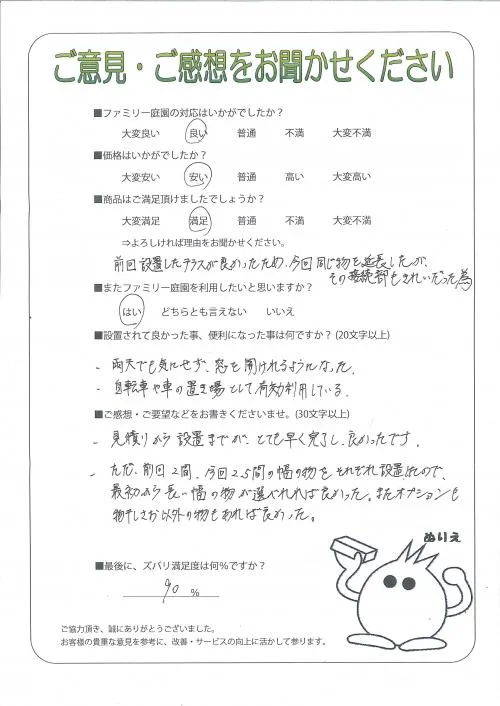 ご意見・ご感想をお聞かせください
■ファミリー庭園の対応はいかがでしたか？
大変良い 良い 普通 不満 大変不満
■価格はいかがでしたか？
大変安い 安い 普通 高い 大変高い
■商品はご満足頂けましたでしょうか？
大変満足 満足 普通 不満 大変不満
⇒よろしければ理由をお聞かせください。
前回設置したテラスが良かったため、今回同じ物を延長したが、
その接続部もきれいだった為
■またファミリー庭園を利用したいと思いますか？
はい どちらとも言えない いいえ
■設置されて良かった事、便利になった事は何ですか？(20文字以上)
- 雨天でも気にせず、窓を開けれるようになった。
- 自転車や車の置き場として有効利用している。
■ご感想・ご要望などをお書きくださいませ。(30文字以上)
- 見積りから設置までが、とても早く完了し、良かったです。
- ただ、前回2間、今回2.5間の幅の物をそれぞれ設置したので、
最初から長い幅の物が選べれれば良かった。またオプションも
物干しざお以外の物もあれば良かった。
ぬりえ
■最後に、ズバリ満足度は何％ですか？
90 %
ご協力頂き、誠にありがとうございました。
お客様の貴重な意見を参考に、改善・サービスの向上に活かして参ります。